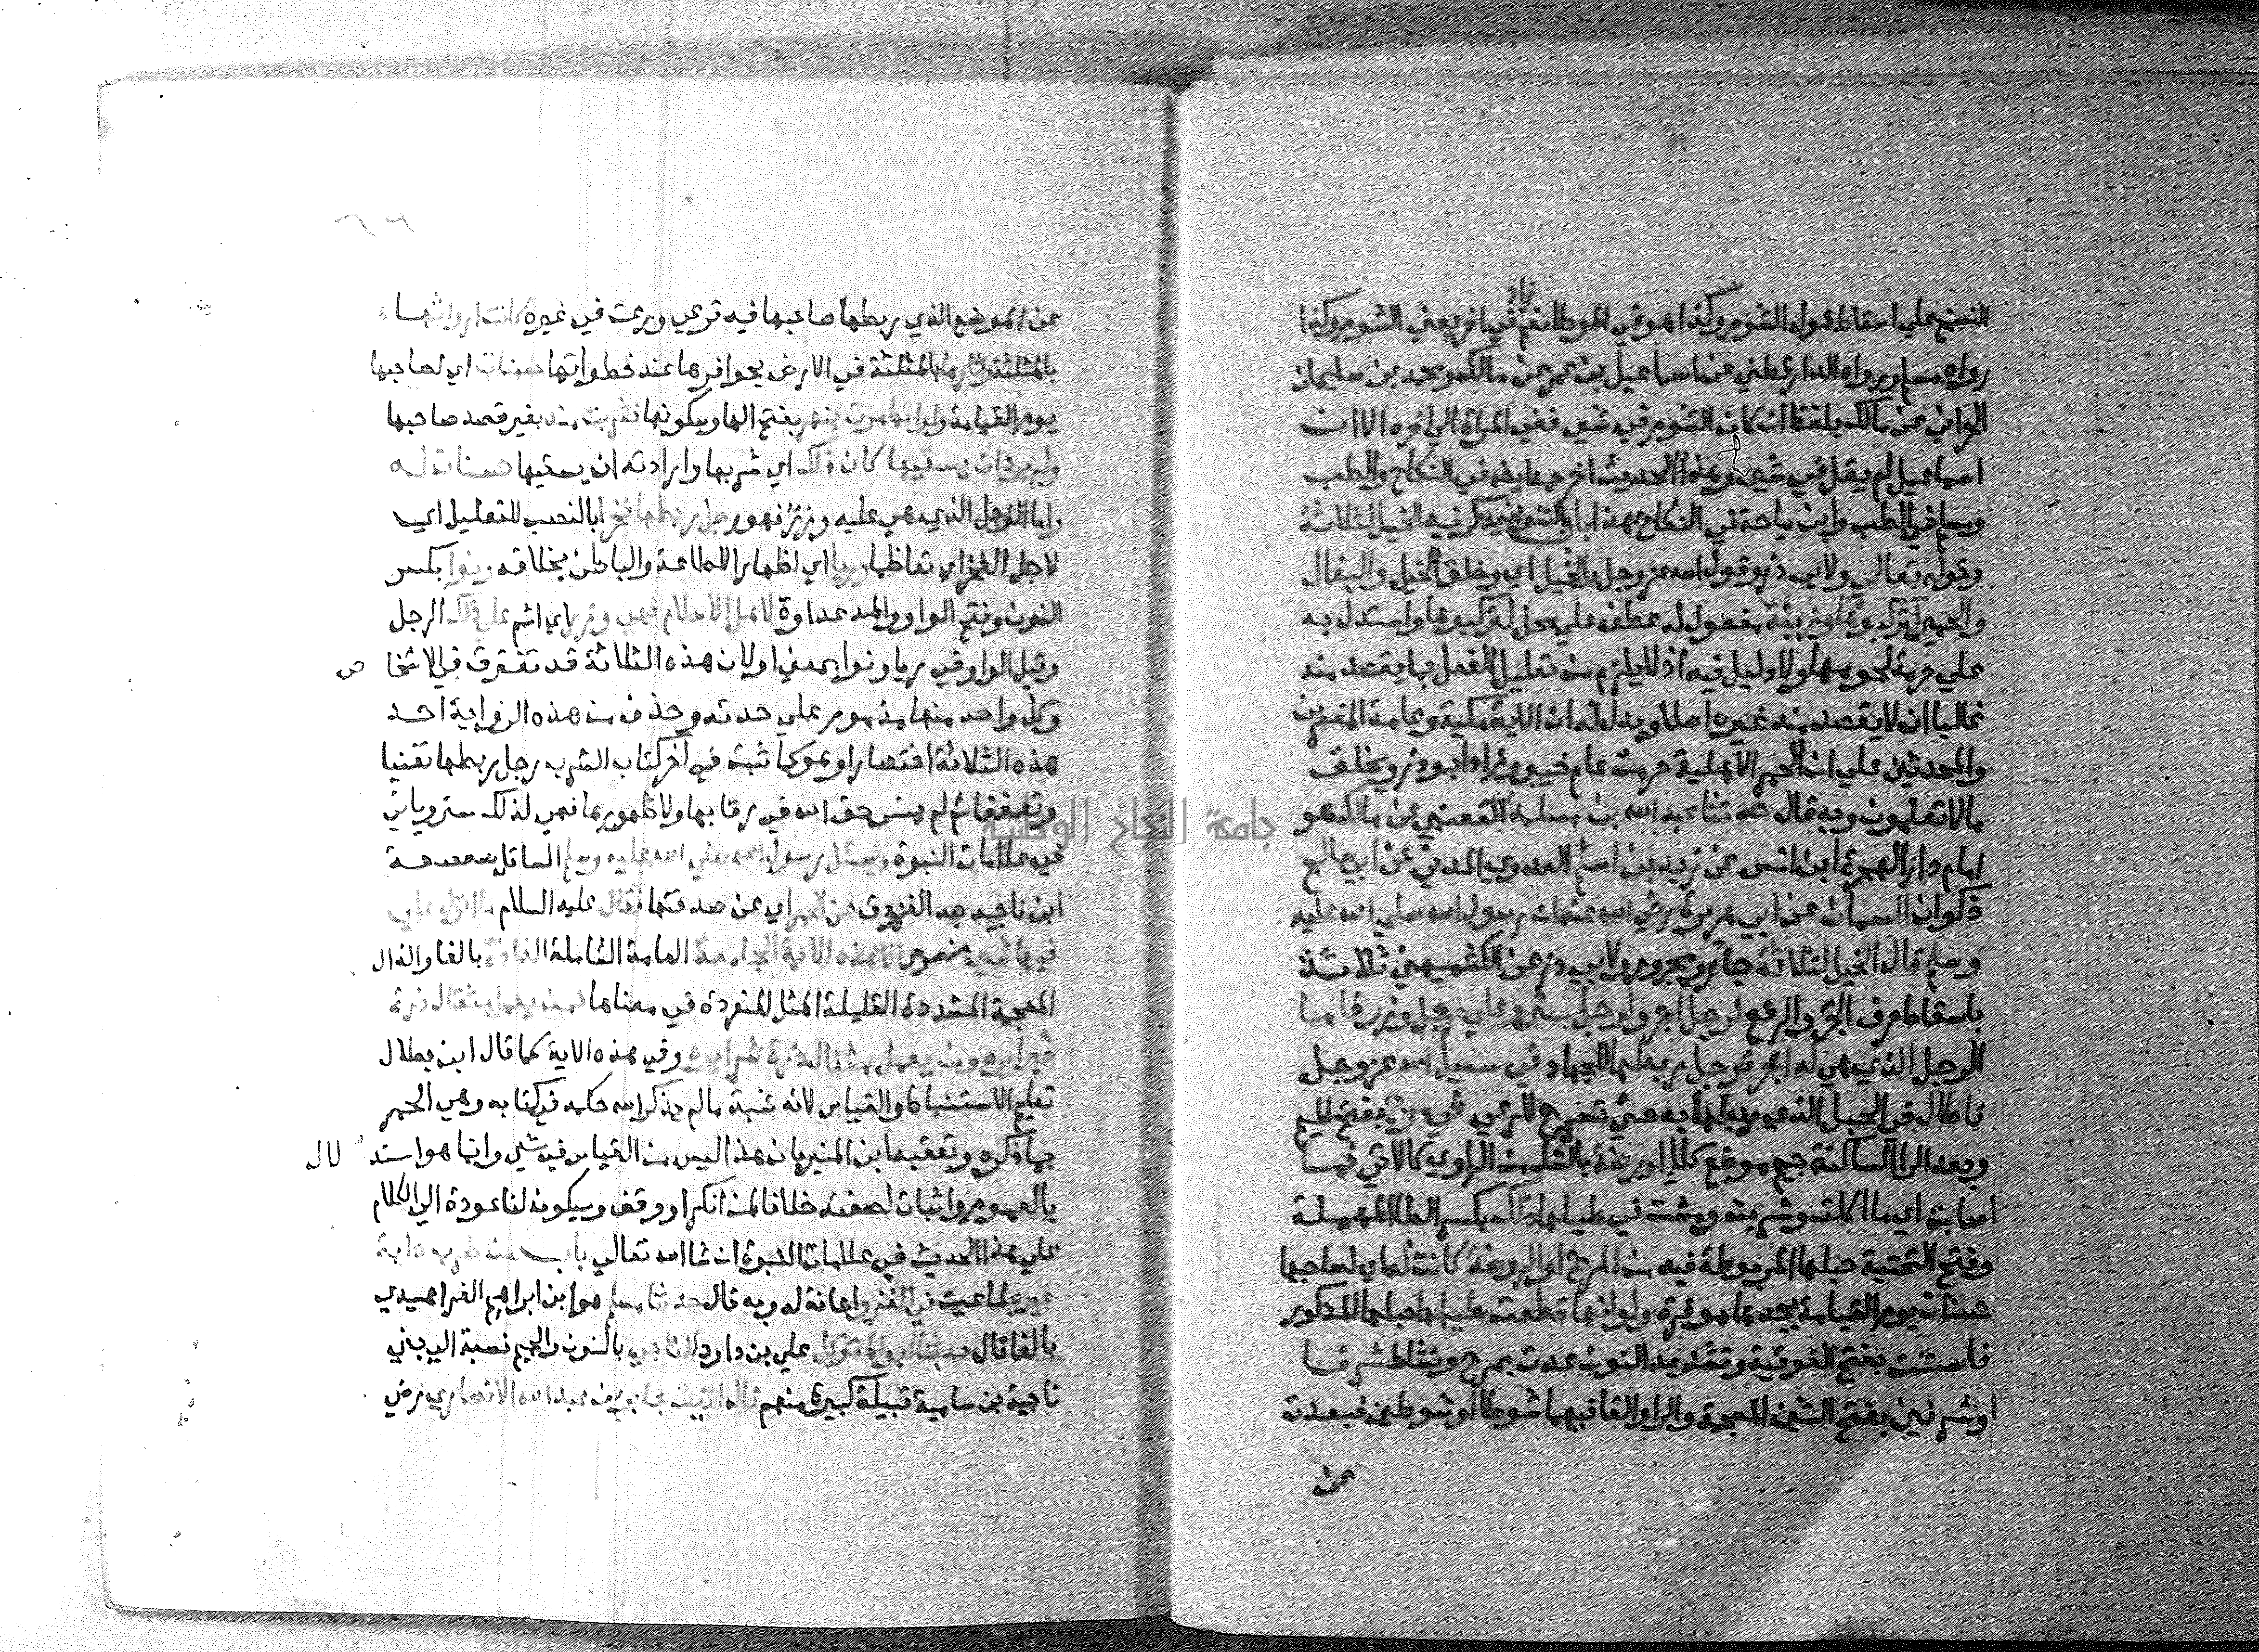 زاد
النسخ علي اسقاط قوله الشوم وكذا هو في الموطا نعم في اخره يعني الشوم وكذا
رواه مسلم ورواه الدارقطني عن اسماعيل بن عمر عن مالك ومحمد بن سليمان
الحراني عن مالك بلفظ ان كان الشوم في شي ففي المراة الي اخره الا ان
اسماعيل لم يقل في شي وهذا الحديث اخرجه ايضا في النكاح والطب
ومسلم في الطب وابن ماجة في النكاح هذا باب بالتنوين يذكر فيه الخيل لثلاثة
وقوله تعالي ولابي ذر وقول الله عز وجل والخيل اي وخلق الخيل والبغال
والحمير لتركبوها وزينة مفعول له عطف علي محل لتركبوها واستدل به
علي حرمة لحومها ولا دليل فيه اذ لا يلزم من تعليل الفعل بما يقصد منه
غالبا ان لا يقصد منه غيره اصلا ويدل له ان الاية مكية وعامة المفسرين
والمحدثين علي ان الحمر الاهلية حرمت عام خيبر وزاد ابو ذر ويخلق
ما لا تعلمون وبه قال حدثنا عبد الله بن مسلمة القعنبي عن مالك هو
امام دار الهجرة ابن انس عن زيد بن اسلم العدوي المدني عن ابي صالح
ذكوان السمان عن ابي هريرة رضي الله عنه ان رسول الله صلي الله عليه
وسلم قال الخيل لثلاثة جار ومجرور ولابي ذر عن الكشميهني ثلاثة
باسقاط حرف الجر والرفع لرجل اجر ولرجل ستر وعلي رجل وزر فاما
الرجل الذي هي له اجر فرجل ربطها للجهاد في سبيل الله عز وجل
فاطال في الحبل الذي ربطها به حتي تسرح للرعي في مرج بفتح الميم
وبعد الرا الساكنة جيم موضع كلا او روضة بالشك من الراوي كالاتي فما
اصابت اي ما اكلت وشربت ومشت في طيلها ذلك بكسر الطا المهملة
وفتح التحتية حبلها المربوطة فيه من المرج او الروضة كانت له اي لصاحبها
حسنات يوم القيامة يجدها موفرة ولو انها قطعت طيلها حبلها المذكور
فاستنت بفتح الفوقية وتشديد النون عدت بمرح ونشاط شرفا
او شرفين بفتح الشين المعجمة والرا والفا فيهما شوطا او شوطين فبعدت
عن
٦٦
عن الموضع الذي ربطها صاحبها فيه ترعي ورعت في غيره كانت ارواثها
بالمثلثة واثارها بالمثلثة في الارض بحوافرها عند خطواتها حسنات اي لصاحبها
يوم القيامة ولو انها مرت بنهر بفتح الها وسكونها فشربت منه بغير قصد صاحبها
ولم يرد ان يسقيها كان ذلك اي شربها وارادته ان يسقيها حسنات له
واما الرجل الذي هي عليه وزر فهو رجل ربطها فخرا بالنصب للتعليل اي
لاجل الفخر اي تعاظما وريا اي اظهارا للطاعة والباطن بخلافه ونوا بكسر
النون وفتح الواو والمد عداوة لاهل الاسلام فهي وزر اي اثم علي ذلك الرجل
وقيل الواو في ريا ونوا بمعني او لان هذه الثلاثة قد تفترق في الاشخا ص
وكل واحد منها مذموم علي حدته وحذف من هذه الرواية احد
هذه الثلاثة اختصارا وهو كما ثبت في اخر كتاب الشرب رجل ربطها تغنيا
وتعففا ثم لم ينس حق الله في رقابها ولا ظهورها فهي لذلك ستر وياتي
في علامات النبوة وسئل رسول الله صلي الله عليه وسلم السائل صعصعة
ابن ناجية جد الفرزدق عن الحمر اي عن صدقتها فقال عليه السلام ما انزل علي
فيها شي منصوص الا هذه الاية الجامعة العامة الشاملة الفاذة بالفا والذال
المعجمة المشددة القليلة المثل المنفردة في معناها فمن يعمل مثقال ذرة
خيرا يره ومن يعمل مثقال ذرة شرا يره وفي هذه الاية كما قال ابن بطال
تعليم الاستنباط والقياس لانه شبه ما لم يذكر الله حكمه في كتابه وهي الحمر
بما ذكره وتعقبه ابن المنير بان هذا ليس من القياس في شي وانما هو استد لال
بالعموم واثبات لصفته خلافا لمن انكر او وقف وسيكون لنا عودة الي الكلام
علي هذا الحديث في علامات النبوة ان شا الله تعالي باب من ضرب دابة
غيره لما عييت في الغزو اعانة له وبه قال حدثنا مسلم هو ابن ابراهيم الفراهيدي
بالفا قال حدثنا ابو المتوكل علي بن داود الناجي بالنون والجيم نسبة الي بني
ناجية بن سامية قبيلة كبيرة منهم قال اتيت جابر بن عبد الله الانصاري رضي
جامعة النجاح الوطنية